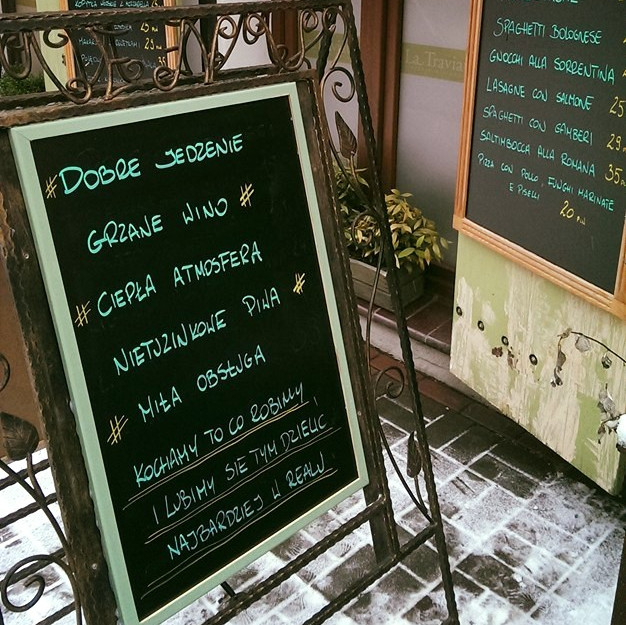 # DOBRE JEDZENIE
GRZANE WINO #
# CIEPŁA ATMOSFERA
NIETUZINKOWE PIWA #
# MIŁA OBSŁUGA
KOCHAMY TO CO ROBIMY
I LUBIMY SIĘ TYM DZIELIĆ,
NAJBARDZIEJ W REALU
La Travia
SPAGHETTI BOLOGNESE
GNOCCHI ALLA SORRENTINA
LASAGNE CON SALMONE 25
SPAGHETTI CON GAMBERI 29
SALTIMBOCCA ALLA ROMANA 35
PIZZA CON POLLO, FUNGHI MARINATE
E PISELLI
20